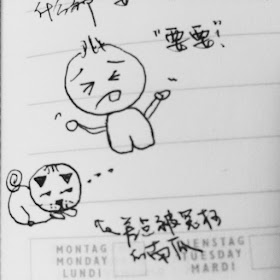 什么都
"要要!"
差点被冤枉
的南瓜
MONTAG
MONDAY
LUNDI
IENSTAG
TUESDAY
MARDI